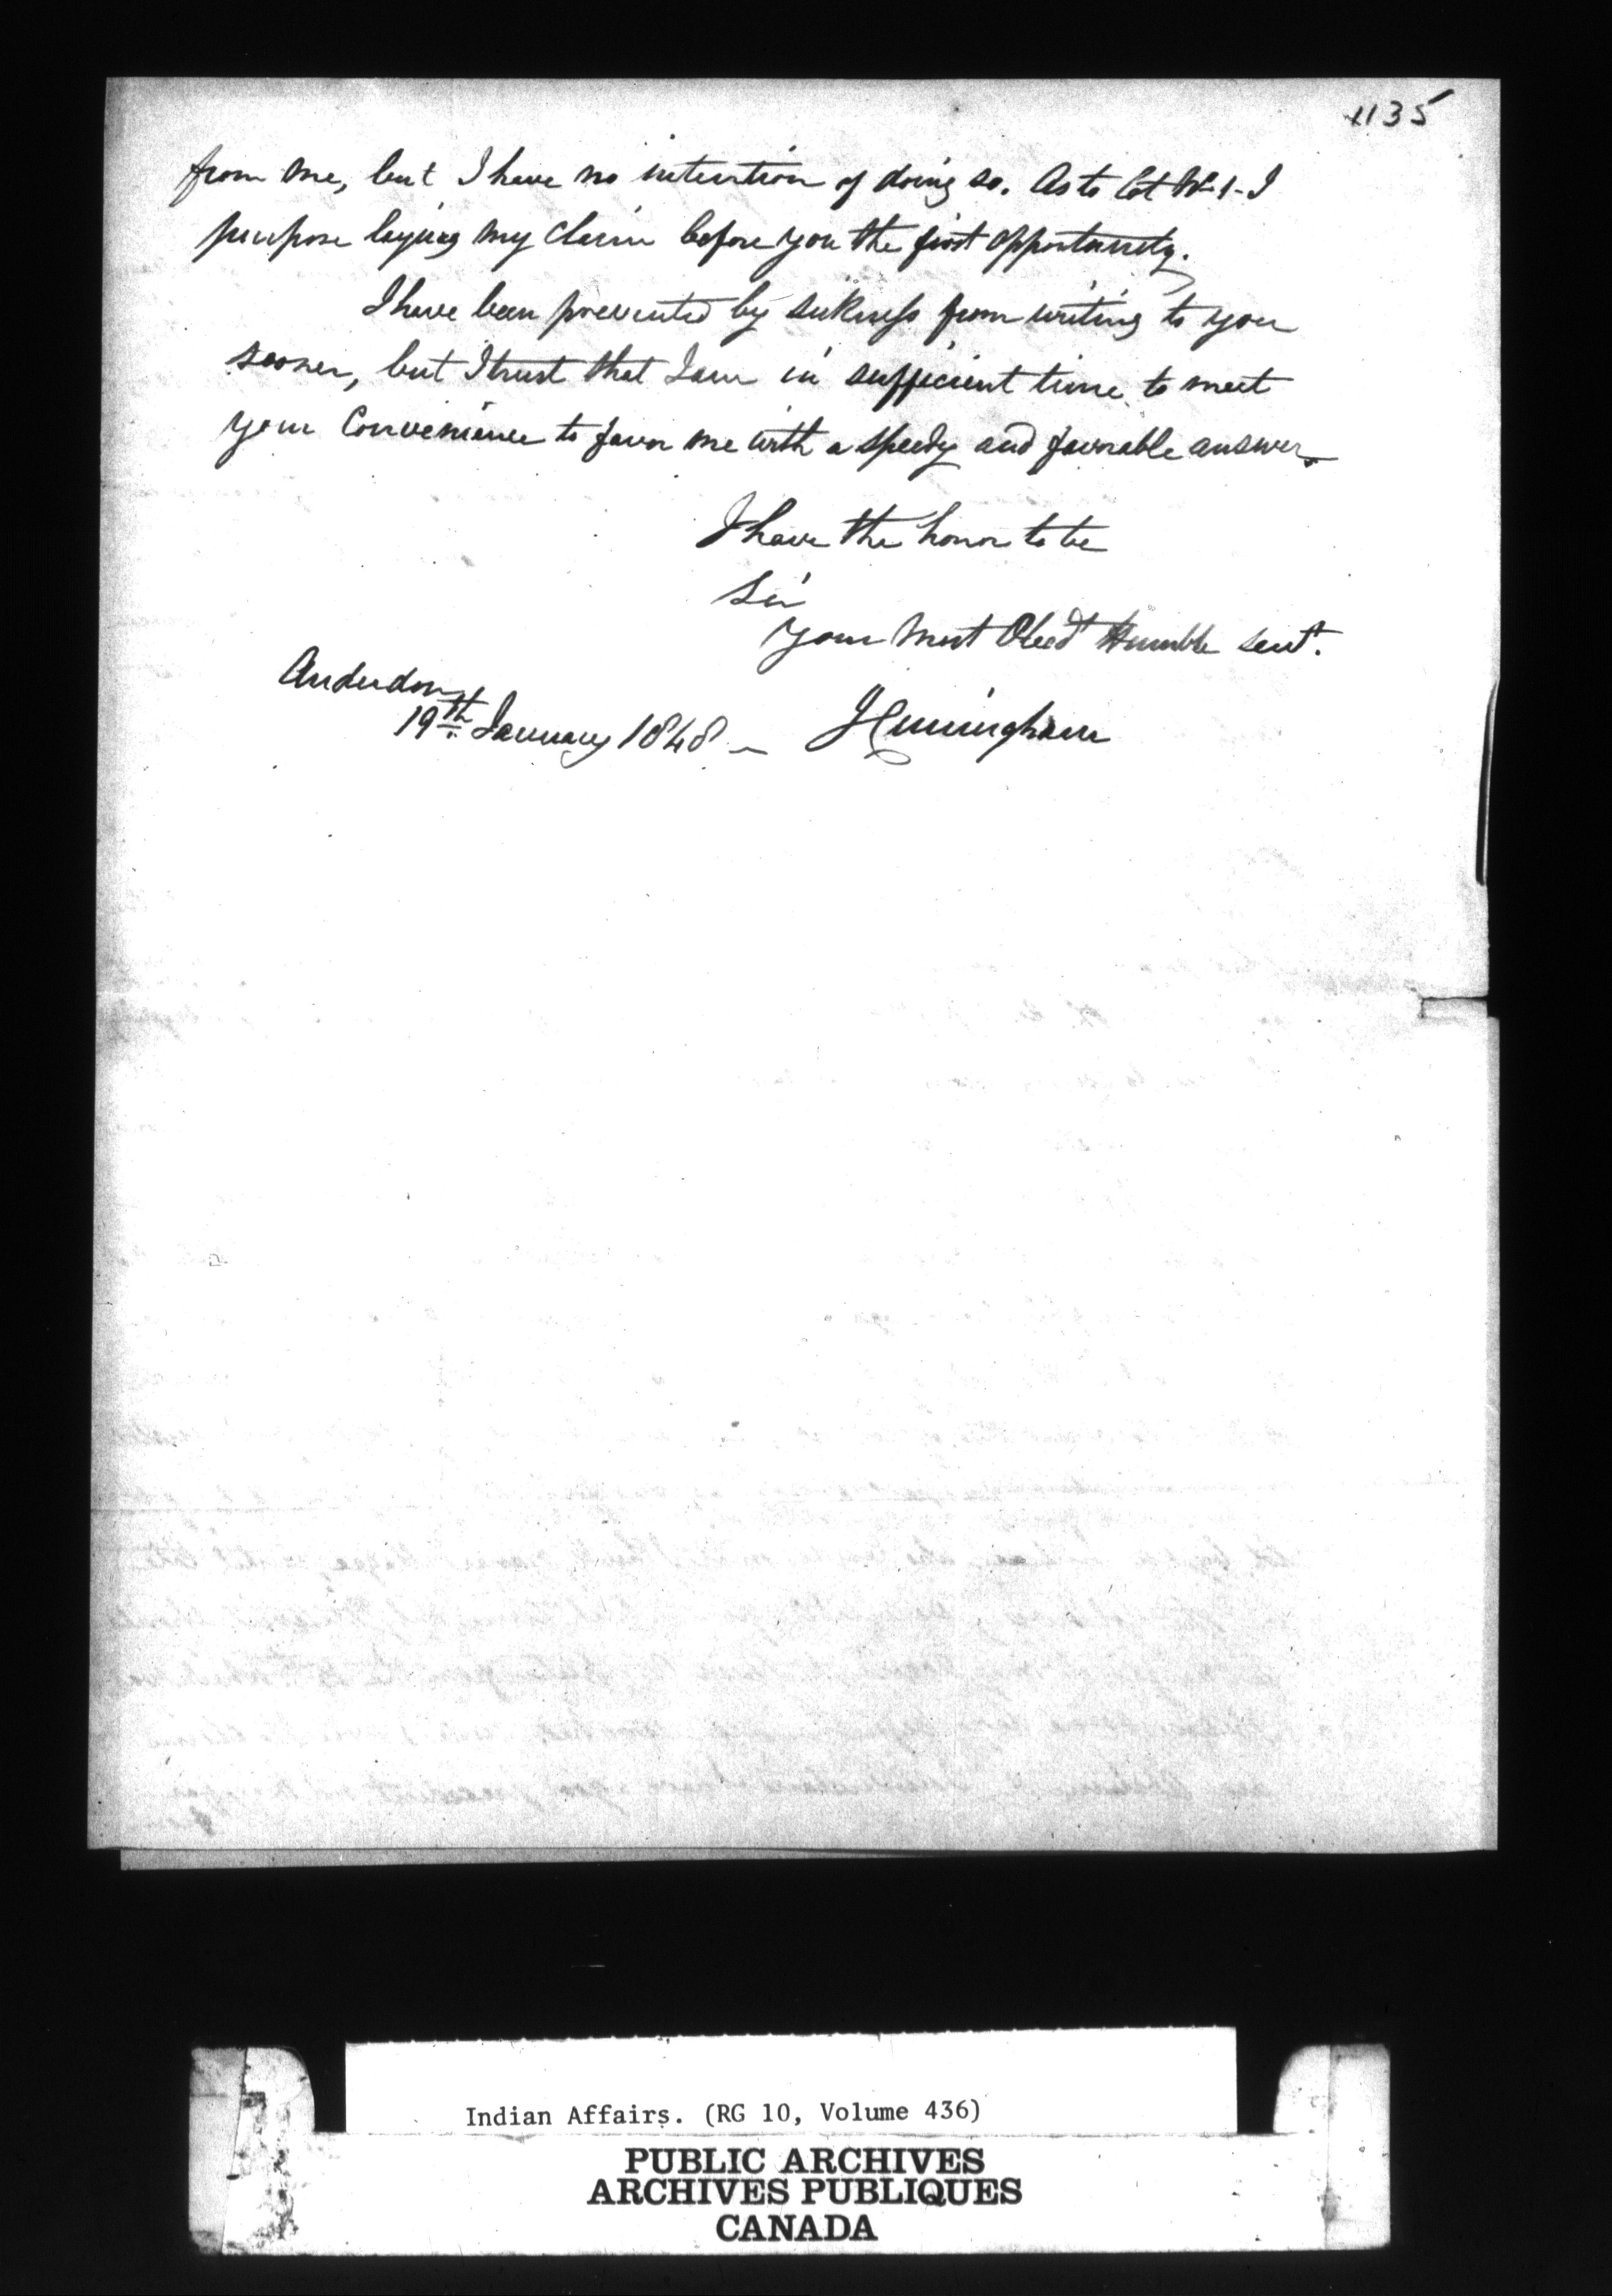 1135
from me, but I have no intention of doing so. As to Lot No 1 - I
purpose laying my claim before you the first opportunity.
I have been prevented by sickness from writing to you
sooner, but I trust that I am in sufficient time to meet
your Convenience to favor me with a speedy and favorable answer.
I have the honor to be
Sir
Your Most Obedt Humble Servt.
Anderdon
19th January 1848 -
Indian Affairs. (RG 10, Volume 436)
PUBLIC ARCHIVES
ARCHIVES PUBLIQUES
CANADA